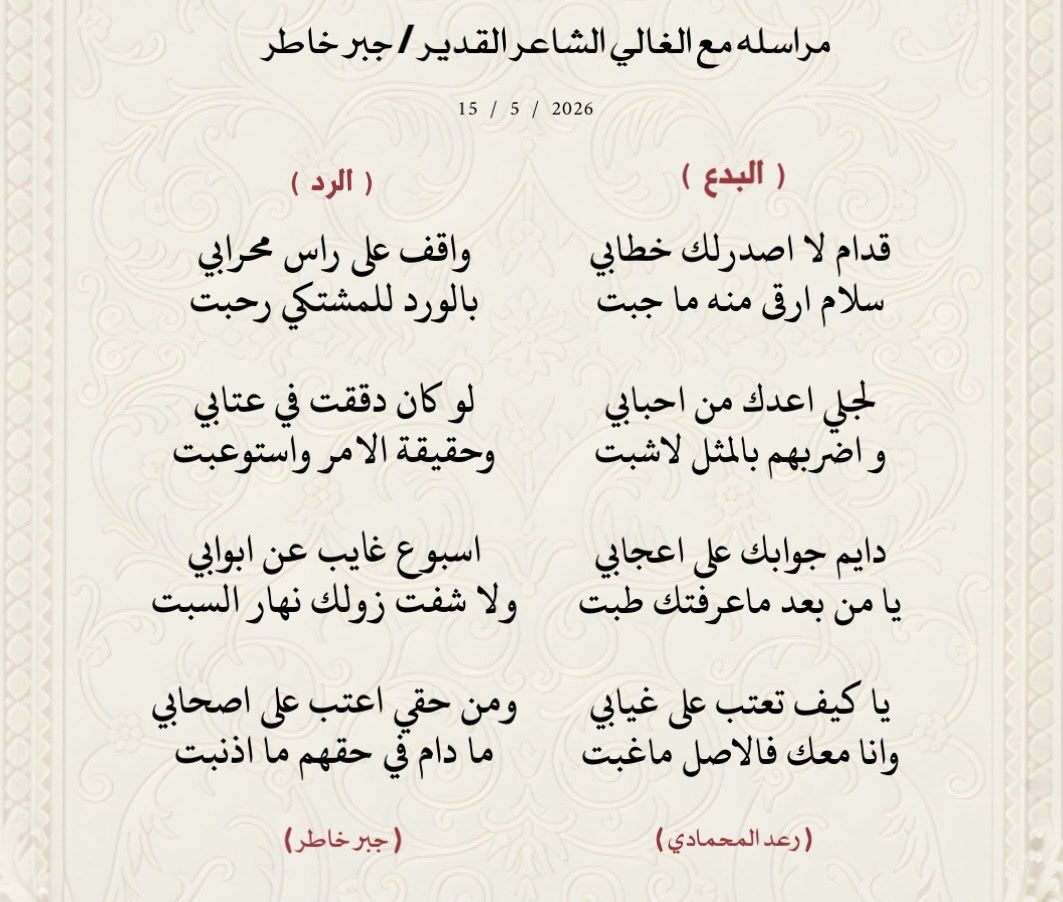 مراسله مع الغالي الشاعر القدير / جبر خاطر
15 / 5 / 2026
( البدع )
قدام لا اصدرلك خطابي
سلام ارقى منه ما جبت
لجلي اعدك من احبابي
و اضربهم بالمثل لاشبت
دايم جوابك على اعجابي
يا من بعد ماعرفتك طبت
يا كيف تعتب على غيابي
وانا معك فالاصل ماغبت
(رعد المحمادي)
( الرد )
واقف على راس محرابي
بالورد للمشتكي رحبت
لو كان دققت في عتابي
وحقيقة الامر واستوعبت
اسبوع غايب عن ابوابي
ولا شفت زولك نهار السبت
ومن حقي اعتب على اصحابي
ما دام في حقهم ما اذنبت
(جبر خاطر)